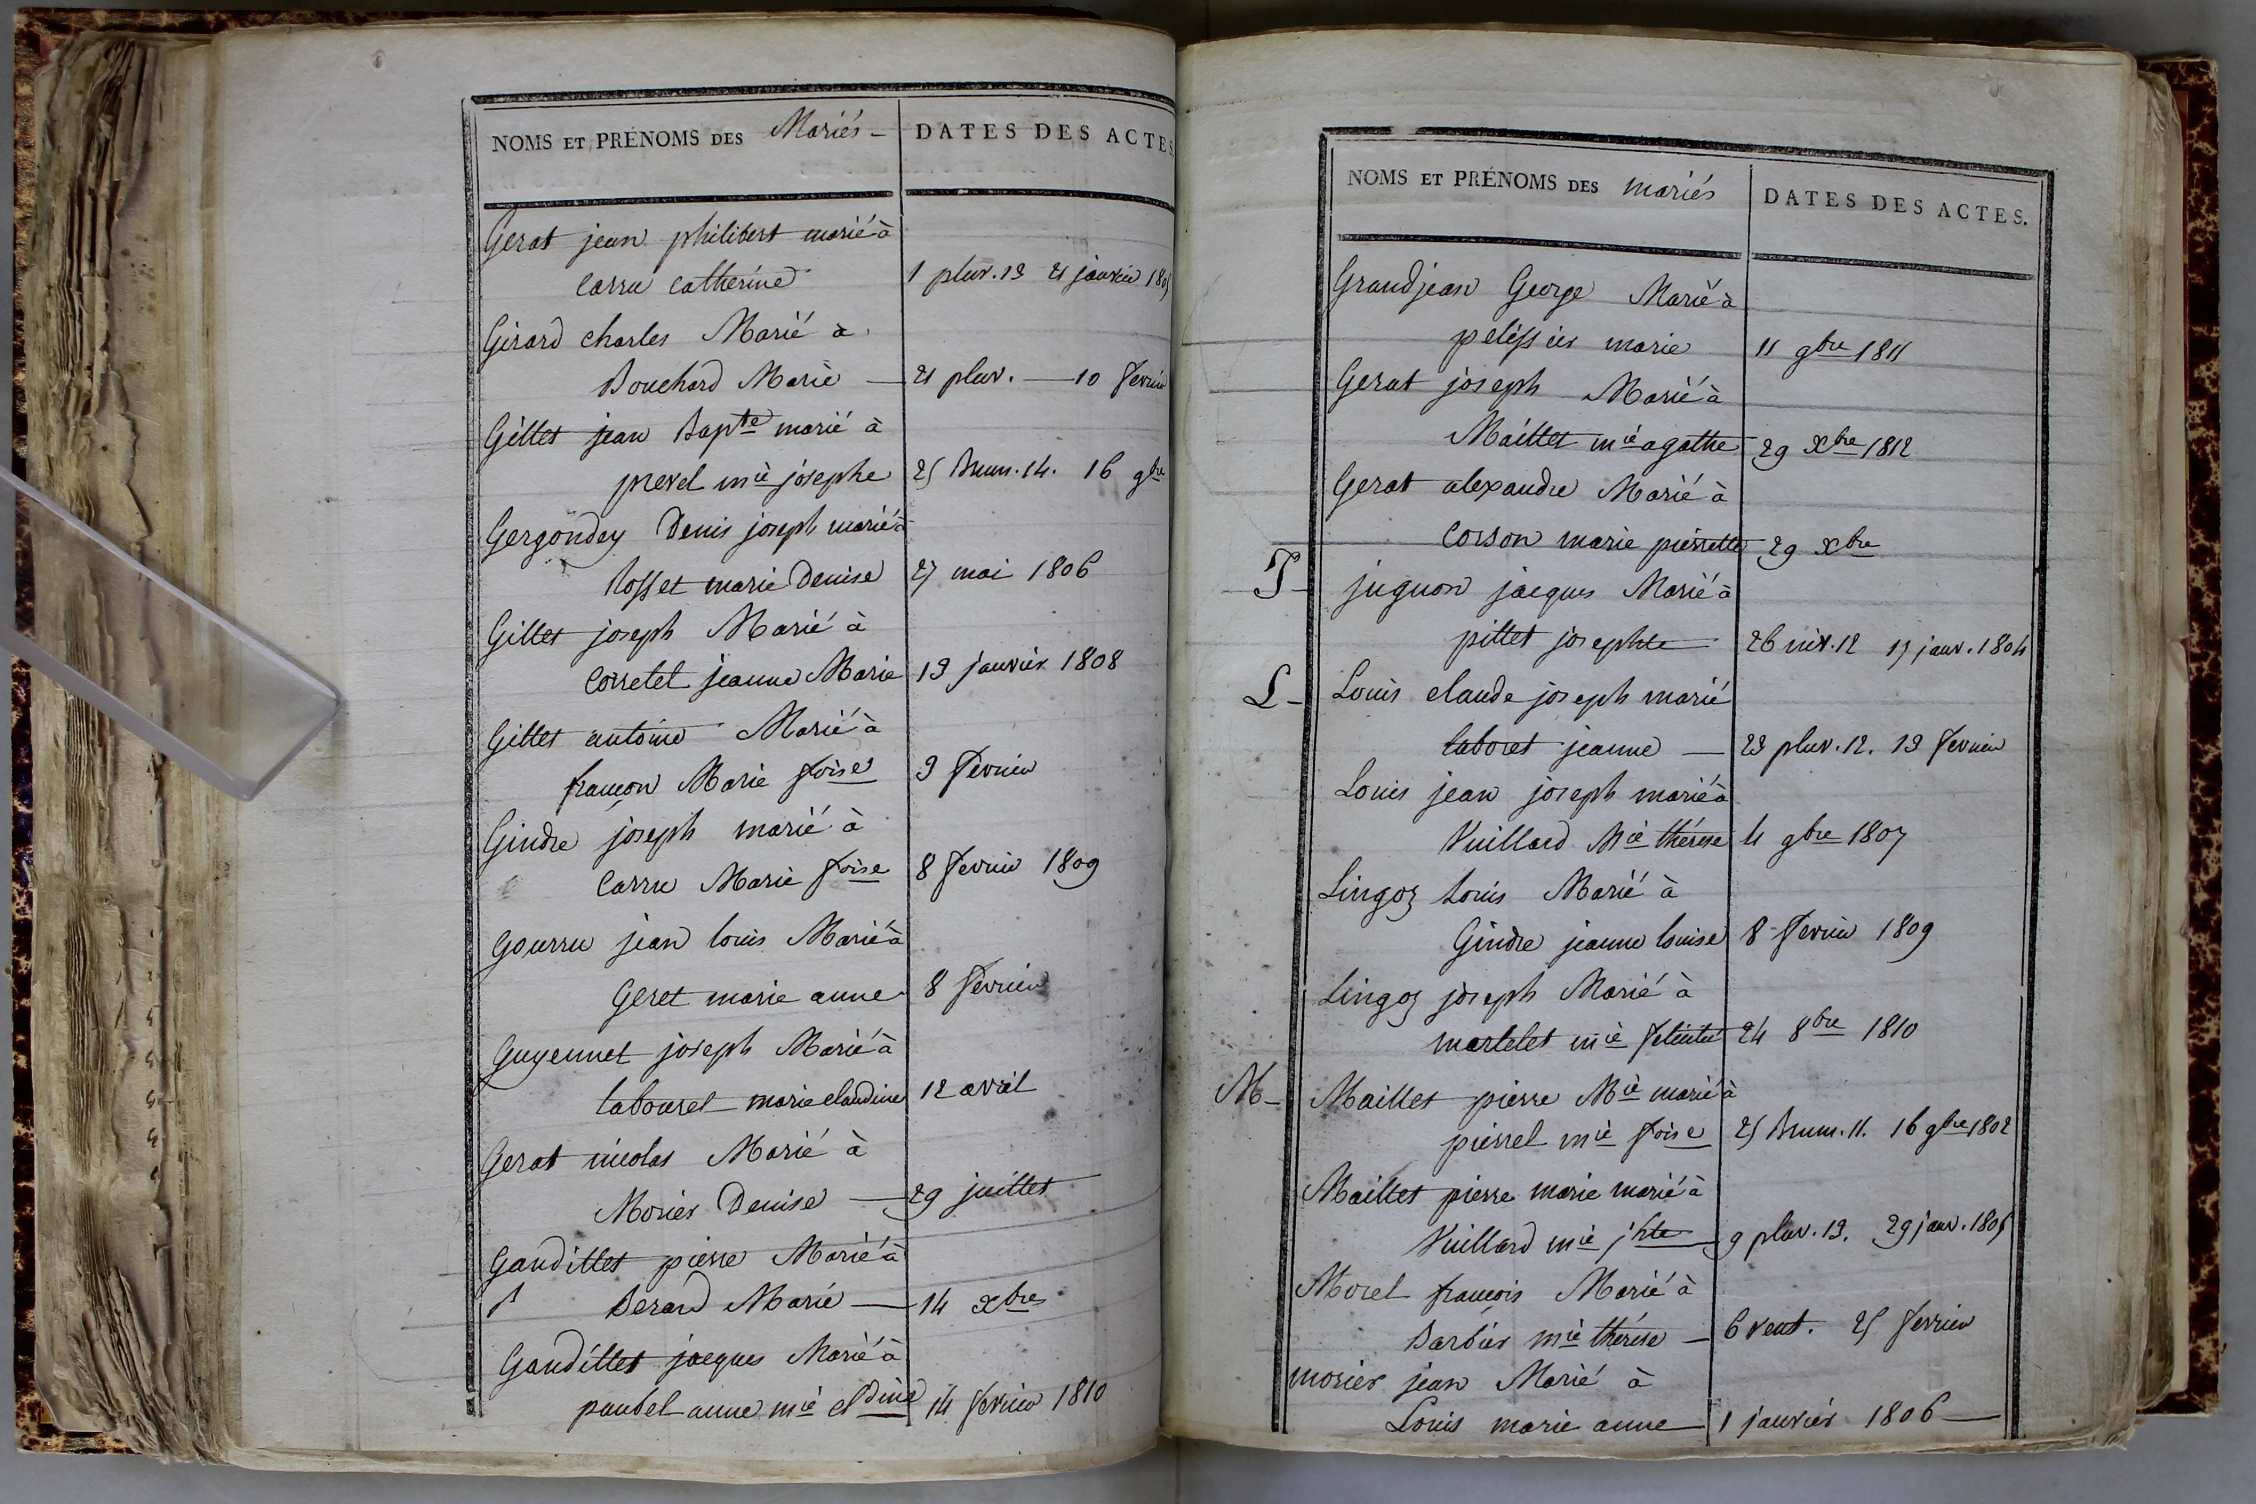 NOMS ET PRÉNOMS DES Mariés - DATES DES ACTES
Gerat jean philibert marié à
Carru Catherine 1 pluv. 13 21 janvier 1805
Girard charles Marié à
Bouchard Marie — 21 pluv. — 10 fevrier
Gillet jean Bapte marié à
prevel mie josephe 25 Brum. 14. 16 9bre
Gergondey Denis joseph marié à
Rosset marie Denise 27 mai 1806
Gillet joseph Marié à
Corretet jeanne Marie 13 janvier 1808
Gillet antoine Marié à
françon Marie foise 9 fevrier
Gindre joseph marié à
Carru Marie foise 8 fevrier 1809
Gourru jean louis Marié à
Geret marie anne 8 fevrier
Guyennet joseph Marié à
labouret marie claudine 12 avril
Gerat nicolas Marié à
Morier Denise — 29 juillet
Gandillet pierre Marié à
Berard Marie — 14 xbre
Gandillet jacques Marié à
paubel anne mie cldine 14 fevrier 1810
NOMS ET PRÉNOMS DES mariés DATES DES ACTES.
Grandjean George Marié à
pelissier marie 11 9bre 1811
Gerat joseph Marié à
Maillet mie agathe 29 xbre 1812
Gerat alexandre Marié à
Corson marie pierrette 29 xbre
J - juguon jacques Marié à
pillet josephte 26 niv. 12 17 janv. 1804
L - Louis claude joseph marié
laboret jeanne — 23 pluv. 12. 13 fevrier
Louis jean joseph marié à
Vuillard Mie thérese 4 9bre 1807
Lingoz Louis Marié à
Gindre jeanne louise 8 fevrier 1809
Lingoz joseph Marié à
martelet mie felicité 24 8bre 1810
M - Maillet pierre Mie marié à
pierrel mie foise 25 Brum. 11. 16 9bre 1802
Maillet pierre marie marié à
Vuillard mie jhte 9 pluv. 13. 29 janv. 1805
Morel françois Marié à
Barbier mie thérese — 6 vent. 25 fevrier
morier jean Marié à
Louis marie anne — 1 janvier 1806 —